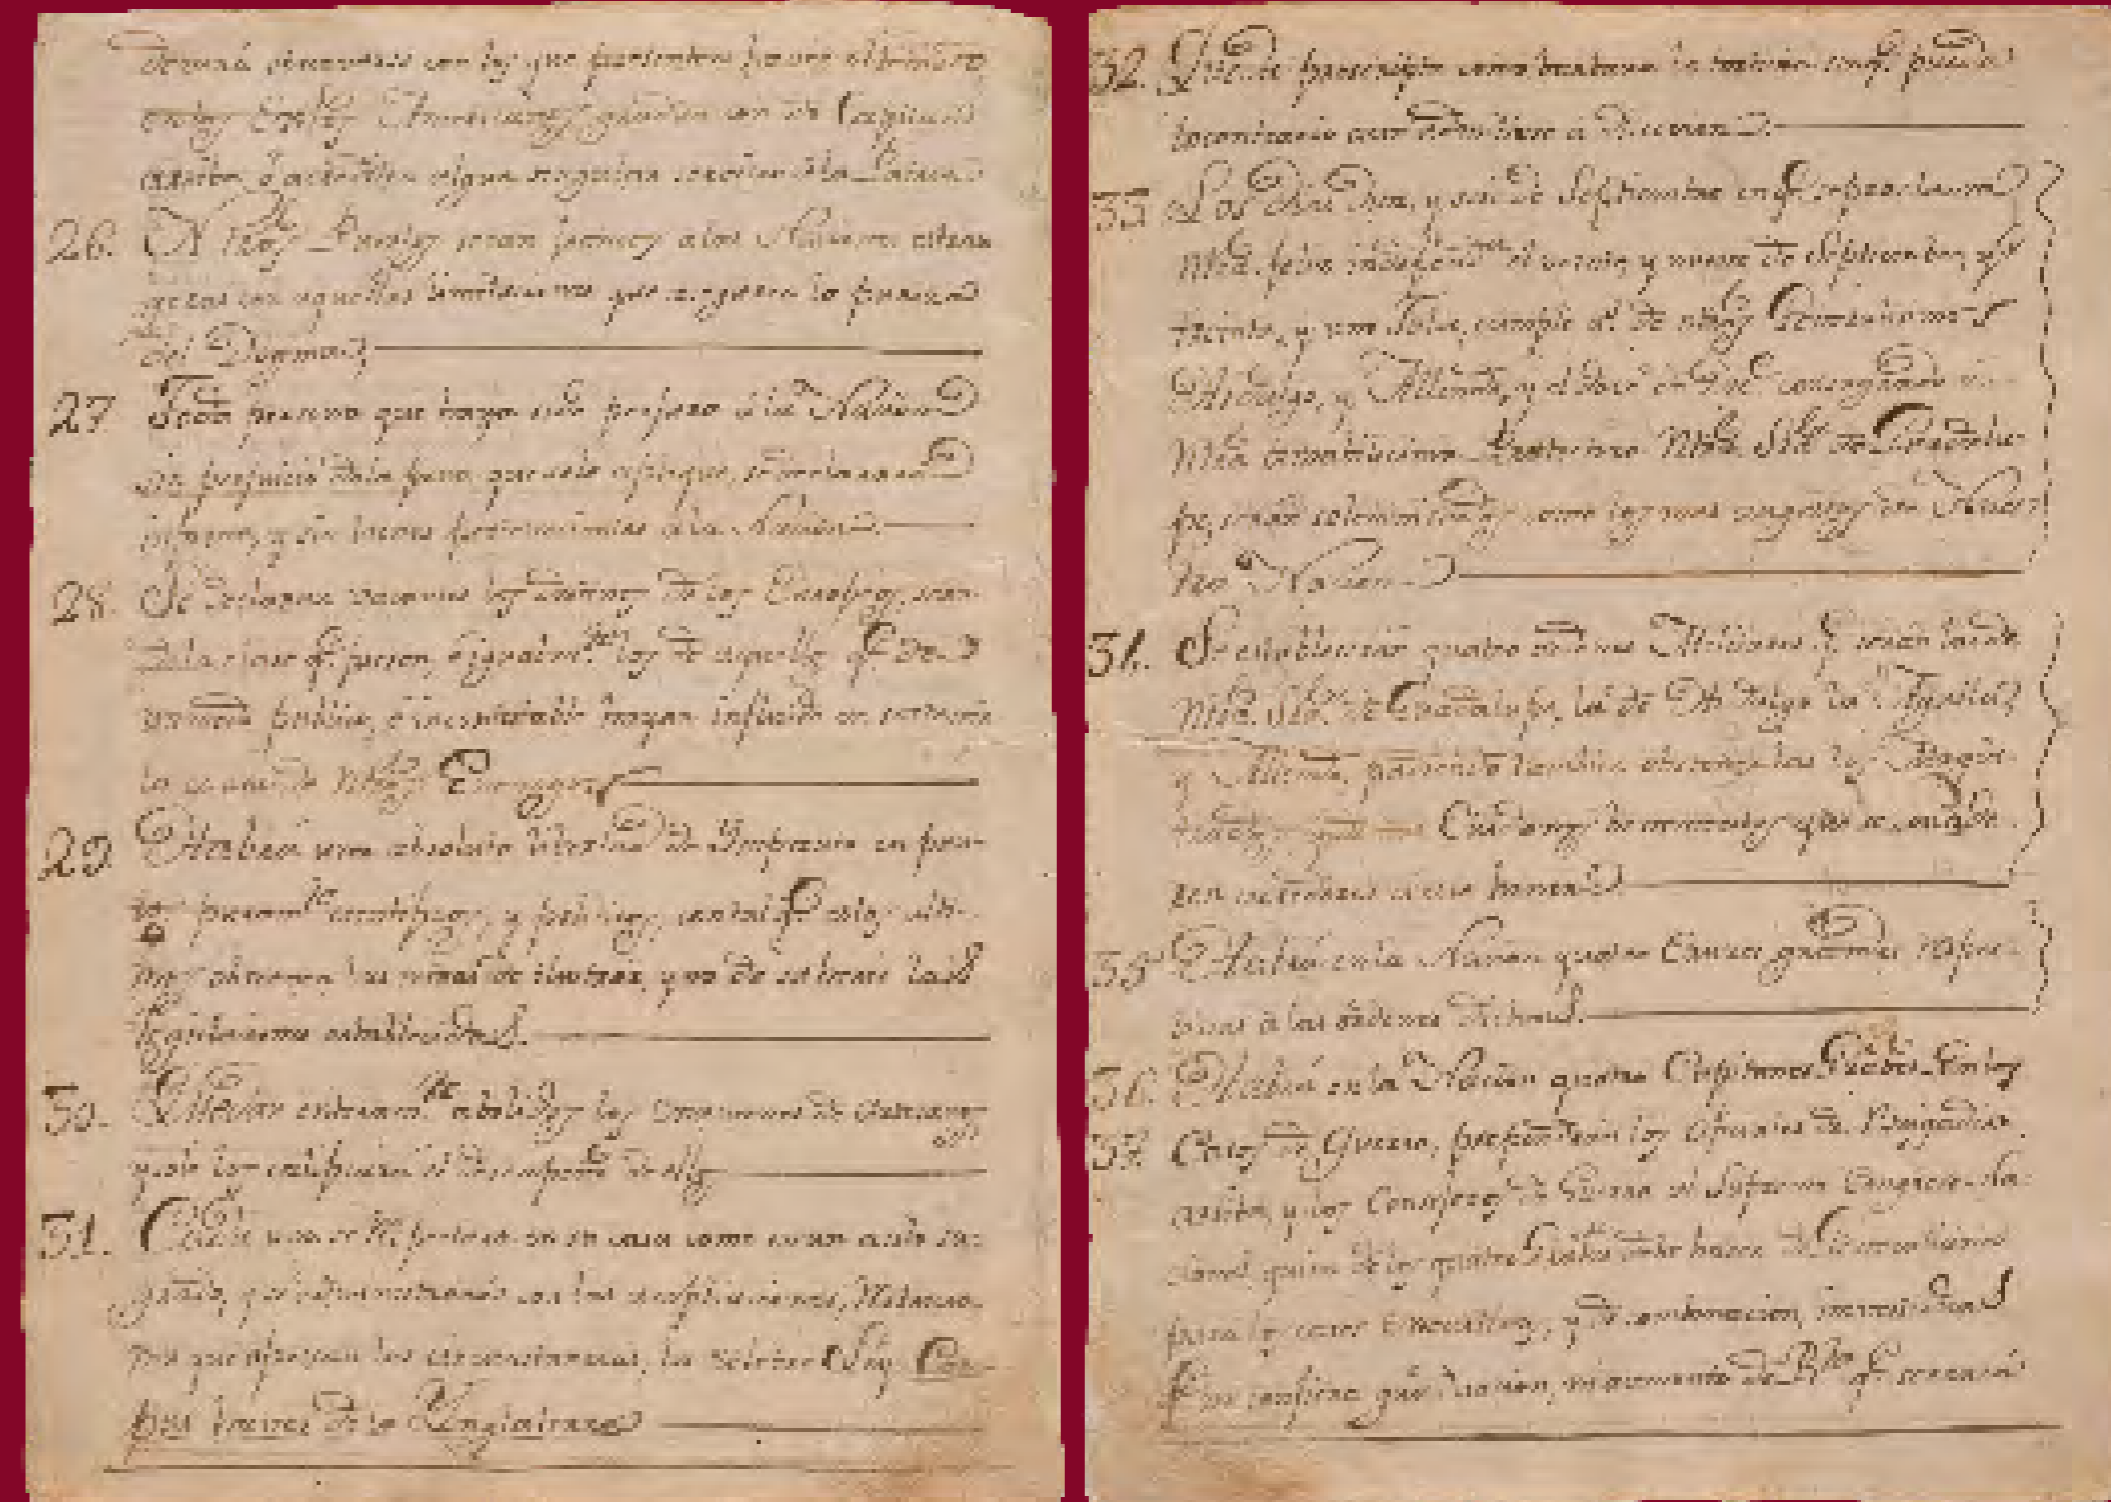 entre los Españoles Americanos graduacion de Capitan
arriba, ó acrediten algun singular servicio á la Patria
26. Ntros Puertos seran francos a las Naciones estran-
geras con aquellas limitaciones que aseguren la pureza
del Dogma
27 Toda persona que haya sido perjura á la Nacion
sin perjuicio dela pena que sele aplique, se declarará
infame, y sus bienes pertenecientes ála Nacion.
28. Se declaran vacantes los destinos de los Europeos, sean
dela clase qe. fuesen, é igualmte. los de aquellos qe. de
publico, é incontestable hayan influido en sostener
la causa de Ntros Enemigos
29 Habrá una absoluta libertad de Imprenta en pun-
tos puramte. científicos, y políticos, con tal qe. estos ulti-
mos observen las miras de ilustrar, y no de zaherir las
legislaciones establecidas.
30. Quedan enteramte. abolidos los examenes de artesanos
y solo los calificará el desempeño de ellos
31. Cada uno se respetará en su casa como en un asilo sa-
grado, y se administrará con las ampliaciones, restriccio-
nes que ofrezcan las circunstancias, la celebre Ley Cor-
pus haveas de la Ynglaterra
32. Quede proscripta como barbara la tortura, sin qe. pueda
lo contrario aun admitirse á discucion.
33 Los dias diez, y seis de Septiembre en qe. se proclama
Ntra. feliz independa. el veinte, y nueve de Septiembre, y
treinta, y uno Julio, cumple as. de ntros Generalisimos
Hidalgo, y Allende, y el doce de Dice. consagrado á
Ntra. amabilisima Protectora Ntra. Sra. de Guadalu-
pe, serán solemnizados como los mas augustos de Nues-
tra Nacion
34. Se establecerán quatro ordenes Militares qe. serán la de
Ntra. Sra. de Guadalupe, la de Hidalgo la Aguila,
y Allende, pudiendo tambien obtenerlas los Magis-
trados, y demas Ciudadanos beneméritos que se conside-
ren acreedores á este honor
35 Habrá en la Nacion quatro Cruces grandes respec-
tivas á las ordenes dichas.
36. Habrá en la Nacion quatro Capitanes Generales
37. Casos de Guerra, propondrán los oficiales de Brigadier
arriba, y los Consejeros de Guerra al Supremo Congreso Na-
cional, quien de los quatro Generales debe hacer de Generalisimo
para los casos executivos, y de combinacion, investidura
qe. no confiere graduacion, ni aumento de Rta. qe. cerrará